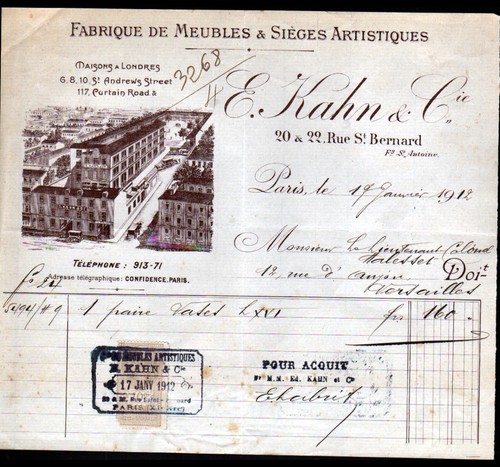 FABRIQUE DE MEUBLES & SIÈGES ARTISTIQUES
MAISONS A LONDRES
6, 8, 10, St Andrews Street
117, Curtain Road. &
3268
E. Kahn & Cie
20 & 22, Rue St Bernard
Fg St Antoine.
Paris, le 17 Janvier 1912
Monsieur le Lieutenant Colonel
12, rue d'
Versailles
Doit
TÉLÉPHONE : 913-71
Adresse télégraphique : CONFIDENCE, PARIS.
1 paire Vases L XVI fr 160
MEUBLES ARTISTIQUES
E. KAHN & Cie
17 JANV 1912
20 & 22, Rue Saint-Bernard
PARIS
POUR ACQUIT
Pr M.M. Ed. KAHN et Cie